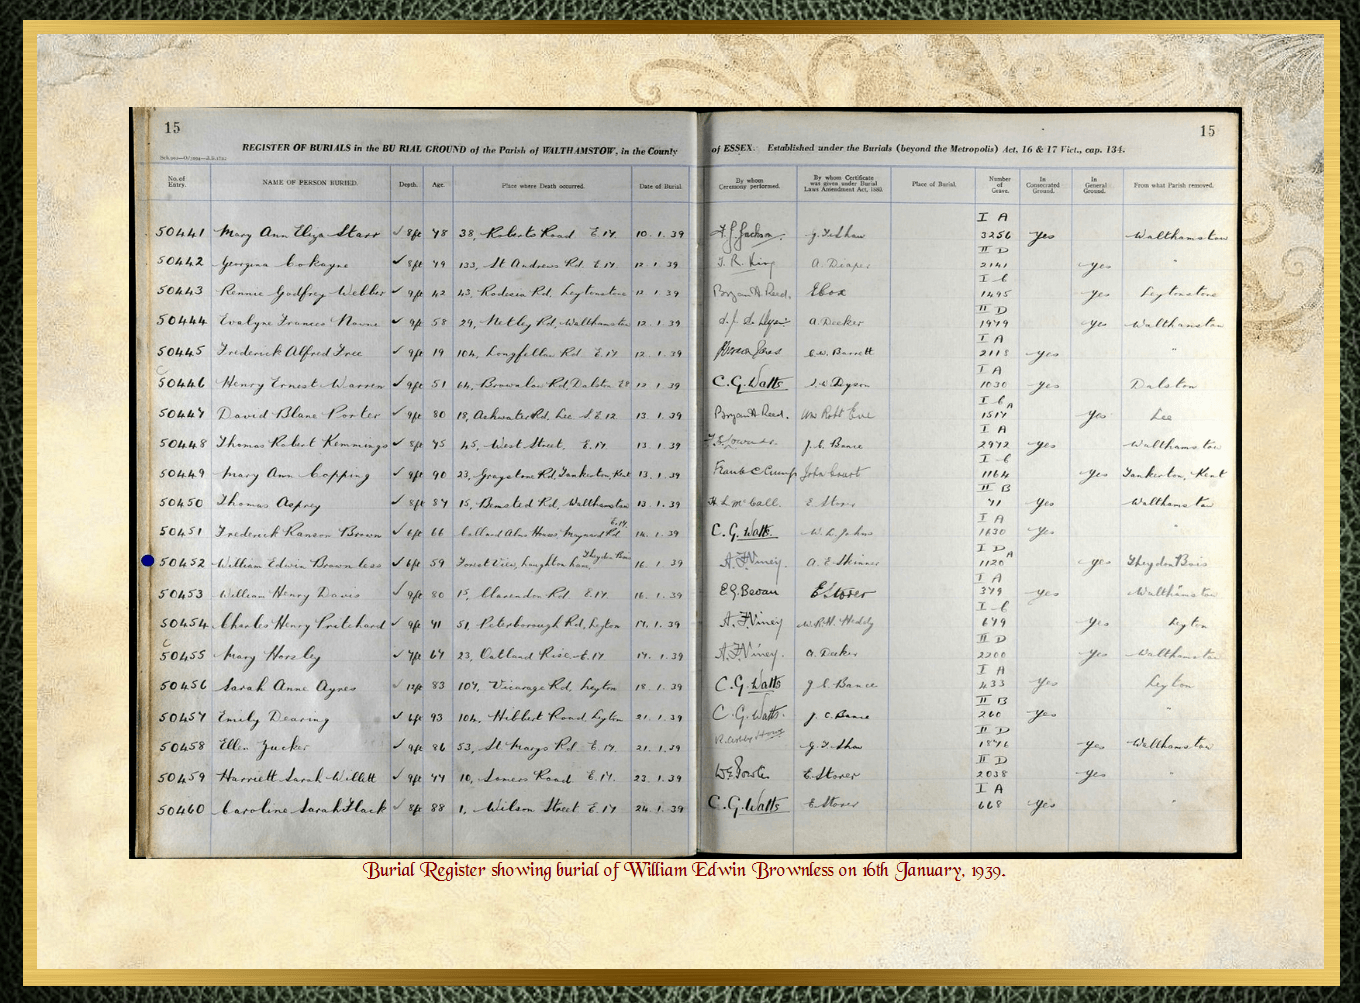 15
15
REGISTER OF BURIALS in the BURIAL GROUND of the Parish of WALTHAMSTOW, in the County
of ESSEX. Established under the Burials (beyond the Metropolis) Act, 16 & 17 Vict., cap. 134.
No. of Entry. NAME OF PERSON BURIED. Depth. Age. Place where Death occurred. Date of Burial. By whom Ceremony performed. By whom Certificate was given under Burial Laws Amendment Act, 1880. Place of Burial. Number of Grave. In Consecrated Ground. In General Ground. From what Parish removed.
50441 Mary Ann Eliza Starr 8ft 78 38, Roberts Road E.17 10.1.39 I A 3256 Yes Walthamstow
50442 Georgina Cokayne 8ft 79 133, St Andrews Rd. E.17 12.1.39 J. R. King A. Draper II D 2141 Yes "
50443 Rennie Godfrey Webber 9ft 42 43, Rodesia Rd, Leytonstone 12.1.39 Bryan H. Reed. E Cox I C 1495 Yes Leytonstone
50444 Evalyne Frances 9ft 58 29, Netley Rd, Walthamstow 12.1.39 A. Decker II D 1979 Yes Walthamstow
50445 Frederick Alfred Free 9ft 19 104, Longfellow Rd. E.17 12.1.39 C.W. Barrett I A 2118 Yes "
50446 Henry Ernest Warren 9ft 51 64, Brownlow Rd, Dalston E8 13.1.39 C.G. Watts J.W Dyson I A 1030 Yes Dalston
50447 David Blane Porter 9ft 80 18, Ashwater Rd, Lee S.E.12 13.1.39 Bryan H. Reed. Wm Robt Eve I C A 1517 Yes Lee
50448 Thomas Robert Kemmings 8ft 75 45, West Street. E.17 13.1.39 J.C. Bance I A 2972 Yes Walthamstow
50449 Mary Ann Copping 9ft 90 23, Graystone Rd, Tankerton, Kent 13.1.39 Frank C Crump John Court I C 1164 Yes Tankerton, Kent
50450 Thomas Asprey 8ft 87 15, Bemsted Rd, Walthamstow 13.1.39 H. L McCall. E Storer II B 71 Yes Walthamstow
50451 Frederick Ranson Brown 6ft 66 Collard Alms Houses, Maynard Rd E.17. 14.1.39 C.G. Watts. W.L. Johns I A 1630 Yes "
50452 William Edwin Brownless 6ft 59 Forest View, Loughton Lane, Theydon Bois 16.1.39 A.F. Viney. A.E Skinner I D A 1120 Yes Theydon Bois
50453 William Henry Davis 9ft 80 15, Clarendon Rd. E.17 16.1.39 E.G. Bevan E Storer I A 379 Yes Walthamstow
50454 Charles Henry Pritchard 9ft 71 51, Peterborough Rd, Leyton 17.1.39 A.F. Viney W.R.H. I C 679 Yes Leyton
50455 Mary Horsley 7ft 67 23, Oatland Rise. E.17 17.1.39 A.F. Viney. A. Decker II D 2200 Yes Walthamstow
50456 Sarah Anne Ayres 12ft 83 107, Vicarage Rd, Leyton 18.1.39 C.G Watts J.C. Bance I A 433 Yes Leyton
50457 Emily Dearing 6ft 93 104, Hibbert Road, Leyton 21.1.39 C.G. Watts. J.C. Bance II B 260 Yes "
50458 Ellen Zucker 9ft 86 53, St Marys Rd E.17. 21.1.39 G.F. Shaw II D 1876 Yes Walthamstow
50459 Harriett Sarah Willett 9ft 77 10, Somers Road E.17. 23.1.39 E. Storer II D 2038 Yes "
50460 Caroline Sarah Flack 8ft 88 1, Wilson Street E.17 24.1.39 C.G. Watts E Storer I A 668 Yes "
Burial Register showing burial of William Edwin Brownless on 16th January, 1939.